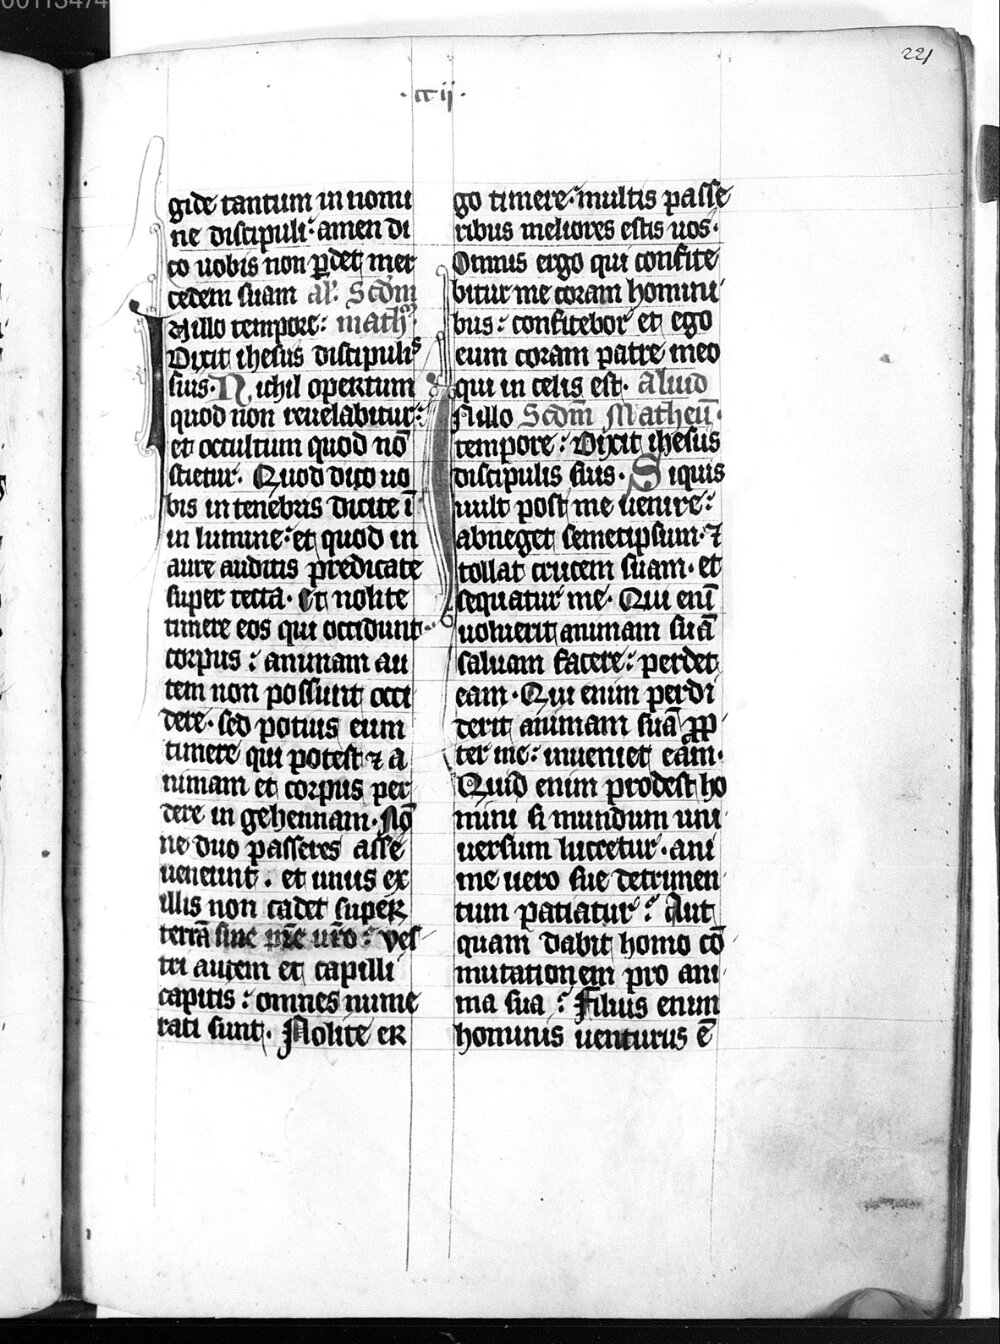 00113474
221
·ccii·
gide tantum in nomi
ne discipuli: amen di
co uobis non p̱det mer
cedem suam al'. Scdm
IN illo tempore: math'm·
Dixit ihesus discipulis
suis· Nichil opertum
quod non reuelabitur:
et occultum quod nō
scietur· Quod dico uo
bis in tenebris dicite ī
in lumine: et quod in
aure auditis predicate
super tecta· Et nolite
timere eos qui occidunt
corpus: animam au
tem non possunt occi
dere· sed potius eum
timere qui potest ⁊ a
nimam et corpus per
dere in gehennam· Nō
ne duo passeres asse
ueneunt· et unus ex
illis non cadet super
terrā sine pr̄e ur̄o: ves
tri autem et capilli
capitis: omnes nume
rati sunt· Nolite er
go timere: multis passe
ribus meliores estis uos·
Omnis ergo qui confite
bitur me coram homini
bus: confitebor et ego
eum coram patre meo
qui in celis est· aliud
IN illo Scdm Matheū·
tempore: Dixit ihesus
discipulis suis· Siquis
uult post me uenire:
abneget semetipsum· ⁊
tollat crucem suam· et
sequatur me· Qui enī
uoluerit animam suā
saluam facere: perdet
eam· Qui enim perdi
derit animam suā prop
ter me: inueniet eam·
Quid enim prodest ho
mini si mundum uni
uersum lucretur· ani
me uero sue detrimen
tum patiatur? Aut
quam dabit homo cō
mutationem pro ani
ma sua? Filius enim
hominis uenturus ē